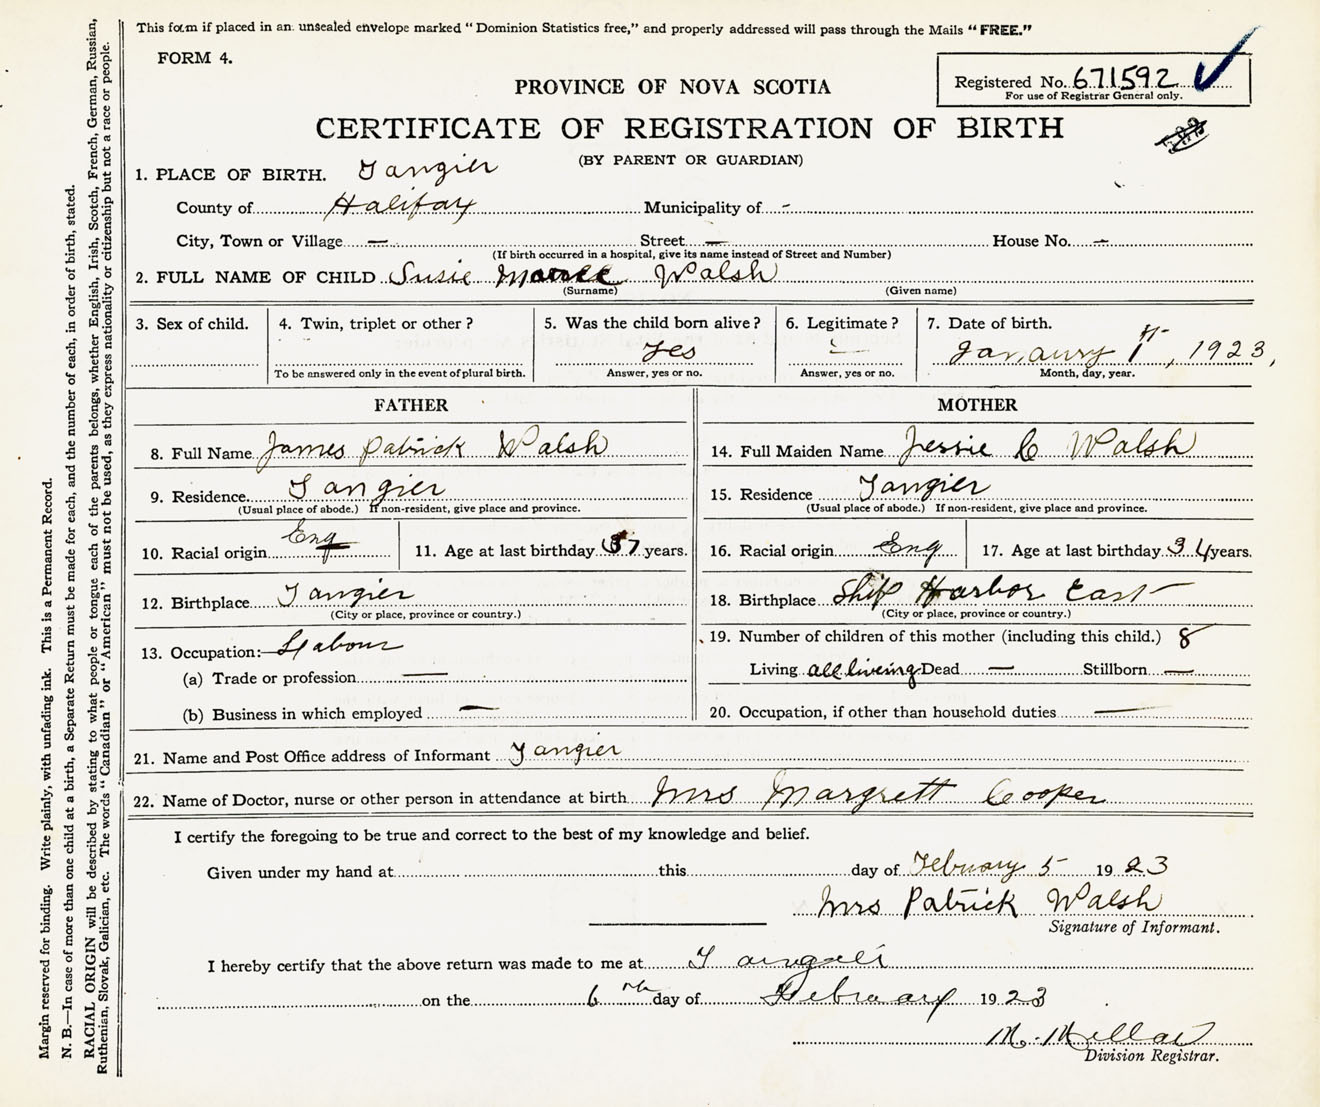 This form if placed in an unsealed envelope marked "Dominion Statistics free," and properly addressed will pass through the Mails "FREE."
FORM 4.
Registered No. 671592
For use of Registrar General only.
PROVINCE OF NOVA SCOTIA
CERTIFICATE OF REGISTRATION OF BIRTH
(BY PARENT OR GUARDIAN)
1. PLACE OF BIRTH. Tangier
County of Halifax Municipality of -
City, Town or Village — Street — House No. —
(If birth occurred in a hospital, give its name instead of Street and Number)
2. FULL NAME OF CHILD Susie Walsh
(Surname) (Given name)
3. Sex of child. 4. Twin, triplet or other? 5. Was the child born alive? 6. Legitimate? 7. Date of birth.
yes — Janaury 1st, 1923,
To be answered only in the event of plural birth. Answer, yes or no. Answer, yes or no. Month, day, year.
FATHER MOTHER
8. Full Name James Patrick Walsh 14. Full Maiden Name Jessie C Walsh
9. Residence Tangier 15. Residence Tangier
(Usual place of abode.) If non-resident, give place and province. (Usual place of abode.) If non-resident, give place and province.
10. Racial origin Eng 11. Age at last birthday 37 years. 16. Racial origin Eng 17. Age at last birthday 34 years.
12. Birthplace Tangier 18. Birthplace Ship Harbor East
(City or place, province or country.) (City or place, province or country.)
13. Occupation:— Labour 19. Number of children of this mother (including this child.) 8
(a) Trade or profession — Living all liveing Dead — Stillborn —
(b) Business in which employed — 20. Occupation, if other than household duties —
21. Name and Post Office address of Informant Tangier
22. Name of Doctor, nurse or other person in attendance at birth Mrs Margrett Cooper
I certify the foregoing to be true and correct to the best of my knowledge and belief.
Given under my hand at this day of February 5 1923
Mrs Patrick Walsh
Signature of Informant.
I hereby certify that the above return was made to me at
on the 6th day of February 1923
M. Millar
Division Registrar.
Margin reserved for binding. Write plainly, with unfading ink. This is a Permanent Record.
N. B.—In case of more than one child at a birth, a Separate Return must be made for each, and the number of each, in order of birth, stated.
RACIAL ORIGIN will be described by stating to what people or tongue each of the parents belongs, whether English, Irish, Scotch, French, German, Russian,
Ruthenian, Slovak, Galician, etc. The words "Canadian" or "American" must not be used, as they express nationality or citizenship but not a race or people.